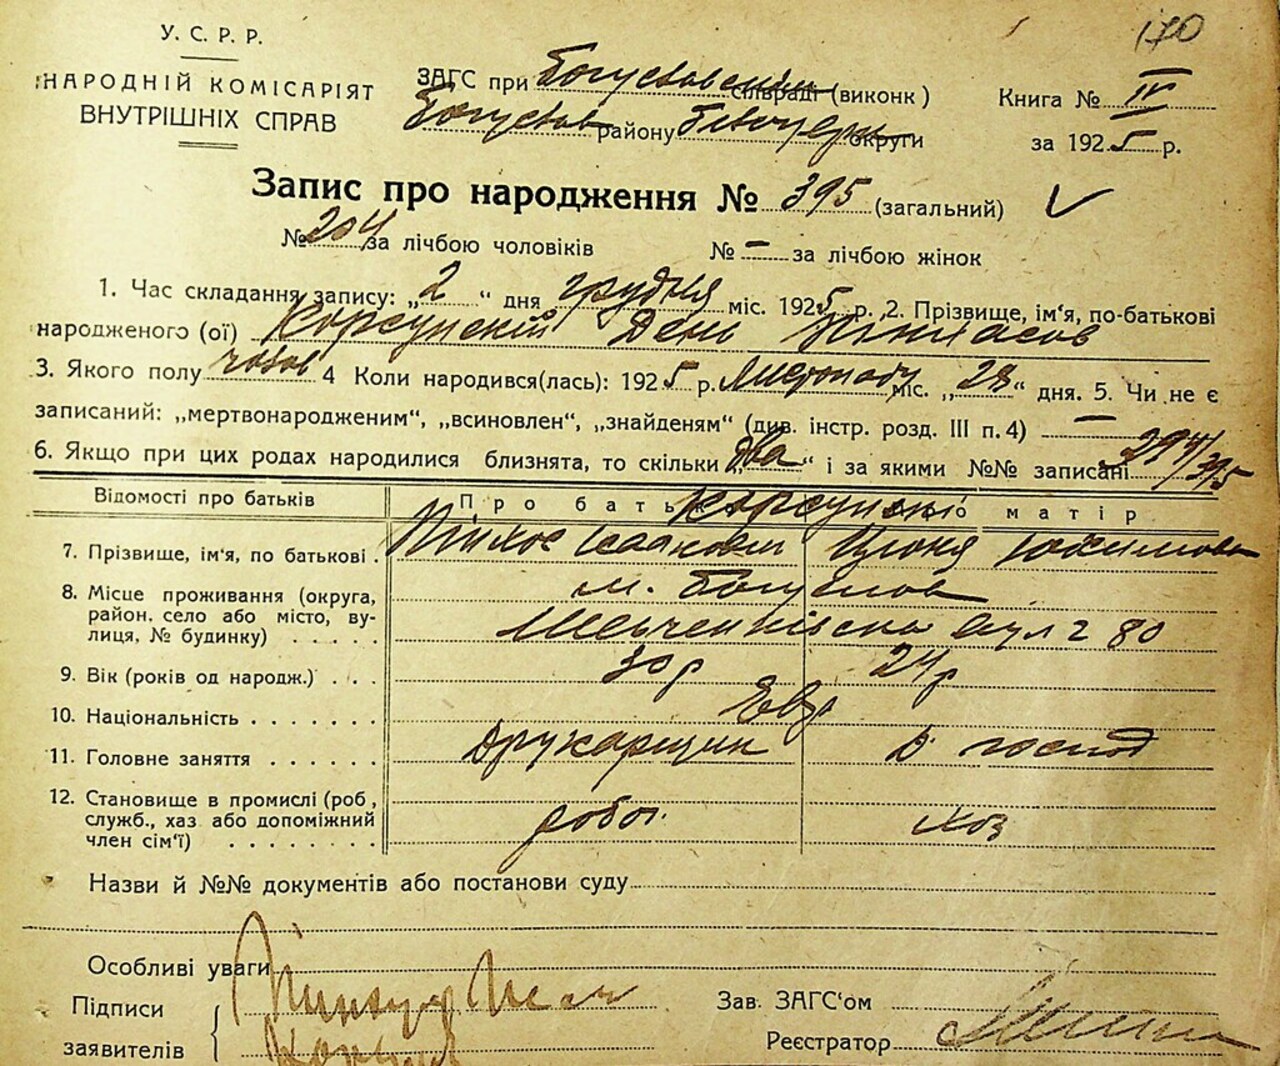 170
У. С. Р. Р.
НАРОДНІЙ КОМІСАРІЯТ
ВНУТРІШНІХ СПРАВ
ЗАГС при Богуславськім сільраді (виконк)
Богуслав району Білоцерк округи
Книга № IV
за 1925 р.
Запис про народження № 395 (загальний)
№ 204 за лічбою чоловіків № – за лічбою жінок
1. Час складання запису: „2“ дня грудня міс. 1925 р. 2. Прізвище, ім'я, по-батькові
народженого (ої) Корсунскій
3. Якого полу чолов 4 Коли народився(лась): 1925 р. Листопаду міс. „28“ дня. 5. Чи не є
записаний: „мертвонародженим“, „всиновлен“, „знайденям“ (див. інстр. розд. III п. 4) –
6. Якщо при цих родах народилися близнята, то скільки „два“ і за якими №№ записані 394/395
Відомості про батьків Про батька Про матір
7. Прізвище, ім'я, по батькові . Пінхос Ісаакович
8. Місце проживання (округа, м. Богуслав
район, село або місто, ву-
лиця, № будинку) . . . . . Шевченківська вул 80
9. Вік (років од народж.) . . . 30 р 24 р
10. Національність . . . . . . . Евр
11. Головне заняття . . . . . . Друкарщик д. господ
12. Становище в промислі (роб,
служб., хаз або допоміжний робот. хоз
член сім'ї) . . . . . . . .
Назви й №№ документів або постанови суду
Особливі уваги
Підписи
заявителів
Зав. ЗАГС'ом
Реєстратор